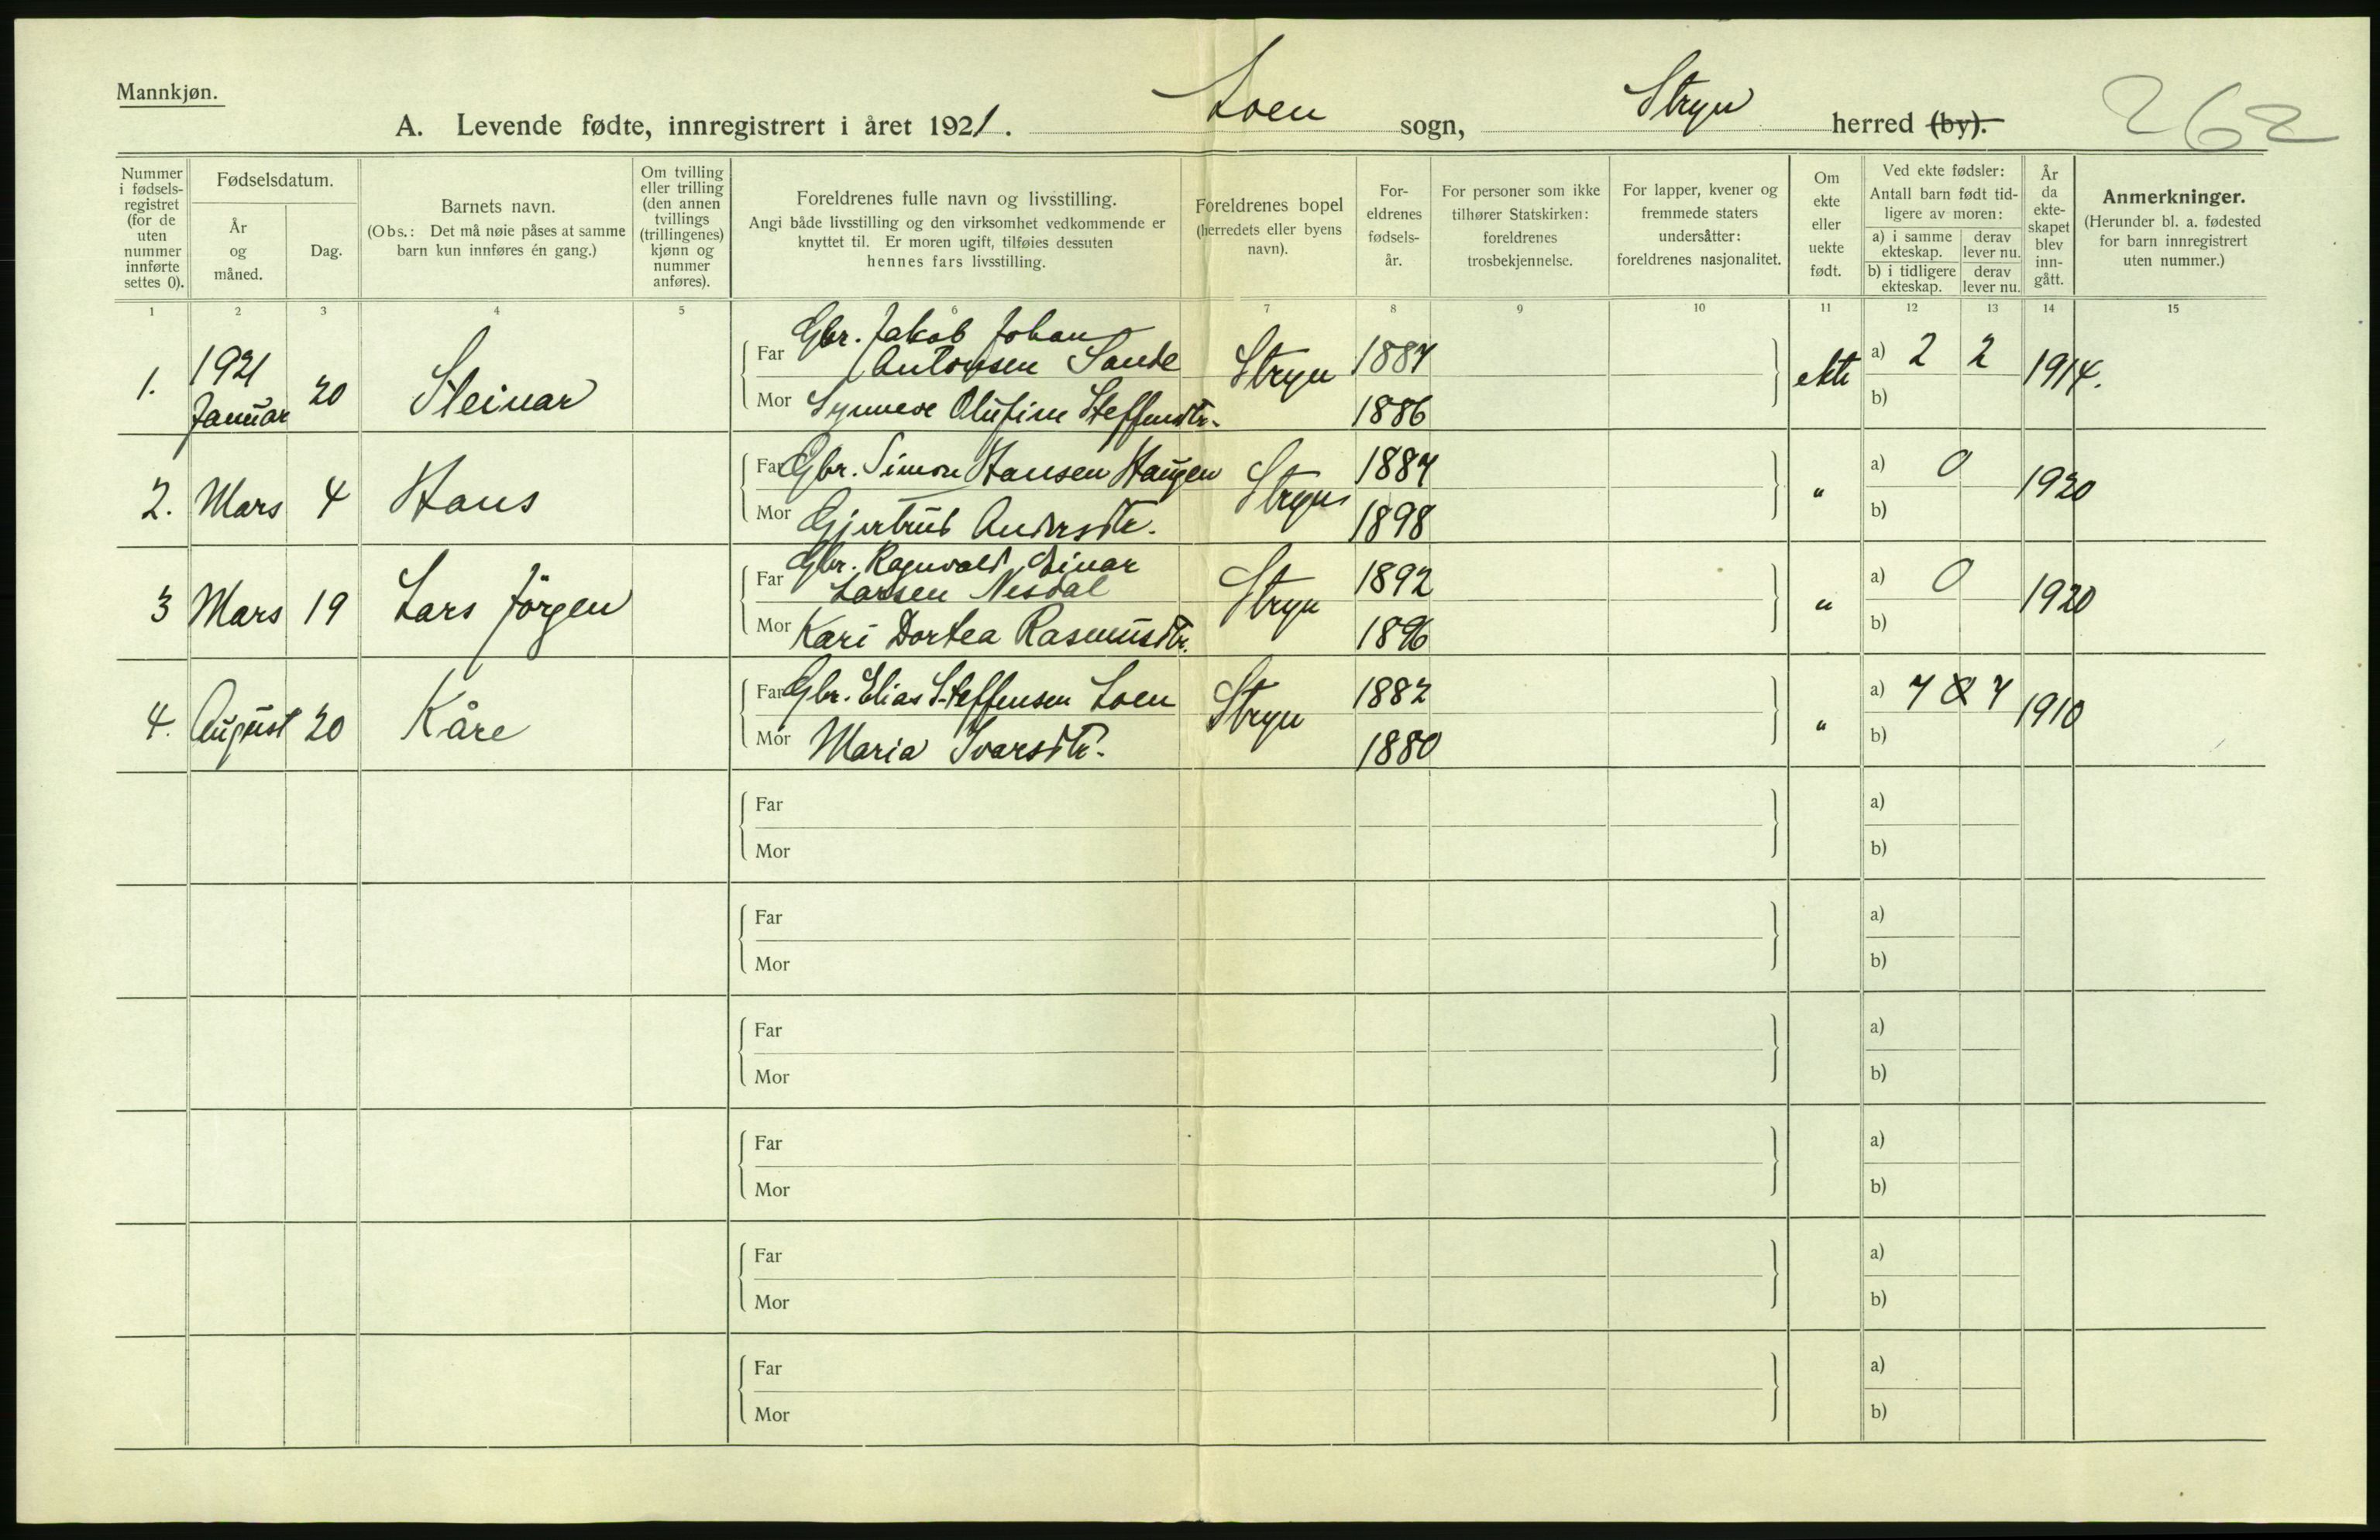 Mannkjøn.
A. Levende fødte, innregistrert i året 1921. Loen sogn, Stryn herred (by).
262
Nummer i fødselsregistret (for de uten nummer innførte settes 0).
Fødselsdatum.
År og måned.
Dag.
Barnets navn.
(Obs.: Det må nøie påses at samme barn kun innføres én gang.)
Om tvilling eller trilling (den annen tvillings (trillingenes) kjønn og nummer anføres).
Foreldrenes fulle navn og livsstilling.
Angi både livsstilling og den virksomhet vedkommende er knyttet til. Er moren ugift, tilføies dessuten hennes fars livsstilling.
Foreldrenes bopel (herredets eller byens navn).
Foreldrenes fødselsår.
For personer som ikke tilhører Statskirken: foreldrenes trosbekjennelse.
For lapper, kvener og fremmede staters undersåtter: foreldrenes nasjonalitet.
Om ekte eller uekte født.
Ved ekte fødsler:
Antall barn født tidligere av moren:
a) i samme ekteskap. derav lever nu.
b) i tidligere ekteskap. derav lever nu.
År da ekteskapet blev inngått.
Anmerkninger.
(Herunder bl. a. fødested for barn innregistrert uten nummer.)
1 2 3 4 5 6 7 8 9 10 11 12 13 14 15
1. 1921 Januar 20 Steinar
Far Gbr. Jakob Johan Antonsen Sande Stryn 1887 ekte a) 2 2 1914.
Mor Synneve Olufine Steffensdtr. 1886 b)
2. Mars 4 Hans
Far Gbr. Simon Hansen Haugen Stryn 1887 " a) 0 1920
Mor Gjertrud Andersdtr. 1898 b)
3 Mars 19 Lars Jörgen
Far Gbr. Ragnvald Einar Larsen Nesdal Stryn 1892 " a) 0 1920
Mor Kari Dortea Rasmusdtr. 1896 b)
4. August 20 Kåre
Far Gbr. Elias Steffensen Loen Stryn 1882 " a) 7 7 1910
Mor Maria Ivarsdtr. 1880 b)
Far a)
Mor b)
Far a)
Mor b)
Far a)
Mor b)
Far a)
Mor b)
Far a)
Mor b)
Far a)
Mor b)